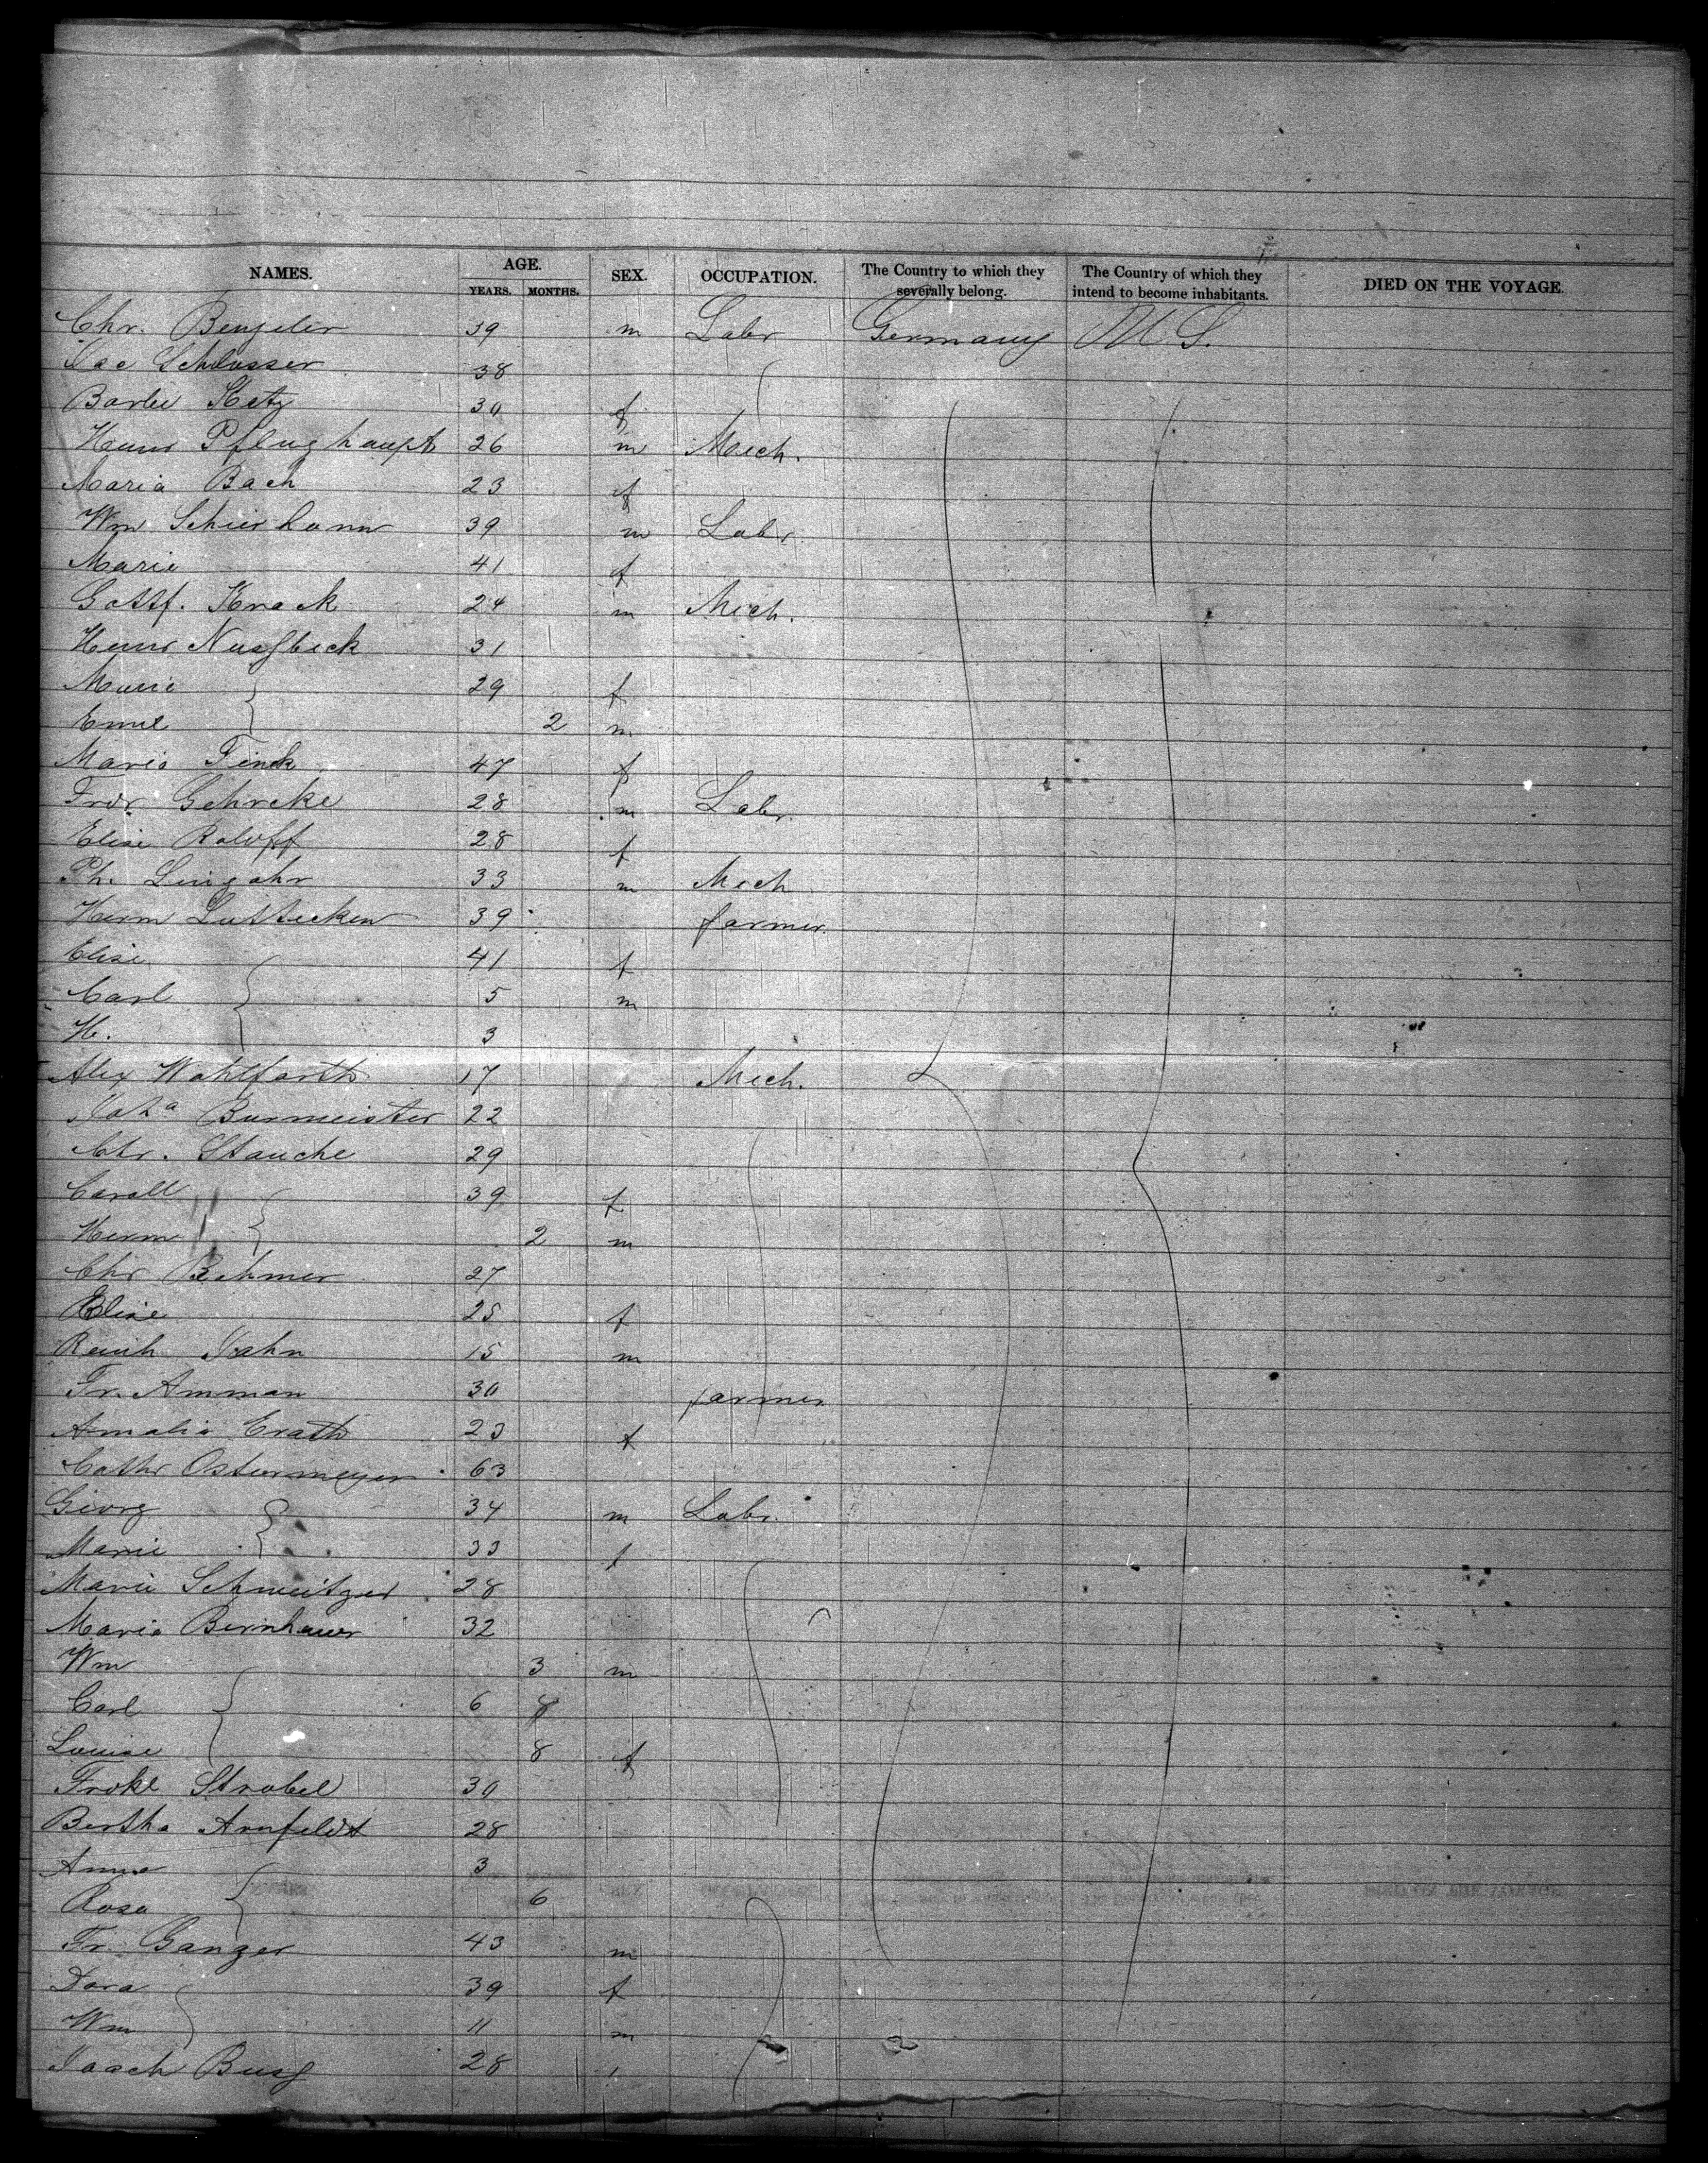 NAMES. AGE. SEX. OCCUPATION. The Country to which they severally belong. The Country of which they intend to become inhabitants. DIED ON THE VOYAGE.
YEARS. MONTHS.
Chr. Bengeler 39 m Labr Germany U.S.
Jac Schlosser 38
Barbe 30 f
Henr Pflughaupt 26 m Mech.
Maria Bach 23 f
Wm Schierhonn 39 m Labr
Marie 41 f
Gottf. Knack 24 m Mech.
Henr Nussbeck 31
Marie 29 f
Emil 2 m
Maria Finck 47 f
Fredr Gehreke 28 m Labr.
Elise Roloff 28 f
Ph. Lingohr 33 m Mech
Herm Luttecken 39 farmer.
Elise 41 f
Carl 5 m
H. 3
Alex Wohlfarth 17 Mech.
Joha Burmeister 22
Chr. Stauche 29
Caroll 39 f
Herm 2 m
Chr Behmer 27
Elise 25 f
Reinh Jahn 15 m
Fr. Amman 30 farmer
Amalia Erath 23 f
Cathr Ostermeyer 63
Georg 34 m Labr.
Marie 33 f
Marie Schweitzer 28
Maria Bernhauer 32
Wm 3 m
Carl 6 8
Louise 8 f
Fredke Strobel 30
Bertha Arnfeldt 28
Anna 3
Rosa 6
Fr. Ganzer 43 m
Dora 39 f
Wm 11 m
Joach Buss 28